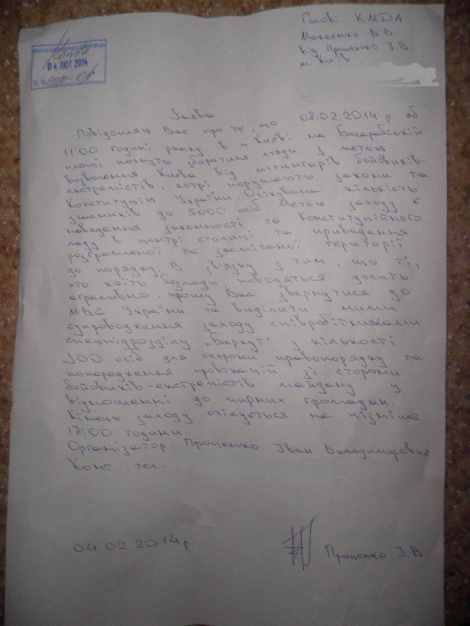 Голові КМДА
Макеєнко В.В.
від Проценко І.В.
м. Київ
04 ЛЮТ 2014
Заява
Повідомляю Вас про те, що 08.02.2014 р. об
11:00 годині ранку в м. Києві на Бесарабській
площі почнуть збиратися люди з метою
визволення Києва від мітингарів бойовиків-
екстремістів, котрі порушують закони та
Конституцію України. Очікувана кількість
учасників до 5000 осіб. Метою заходу є
наведення законності та Конституційного
ладу в центрі столиці та приведення
розгромленої та засміченої території
до порядку. В звязку з тим, що ті,
хто коїть безлади поводяться досить
агресивно, прошу Вас звернутися до
МВС України та виділити нам
супроводження заходу співробітниками
спецпідрозділу „Беркут" у кількості
300 осіб для охорони правопорядку та
попередження провокацій зі сторони
бойовиків-екстремістів майдану у
відношенні до мирних громадян.
Кінець заходу очікується не пізніше
17:00 години.
Організатор: Проценко Іван Володимирович
Конт. тел.
04.02.2014 р
Проценко І.В.